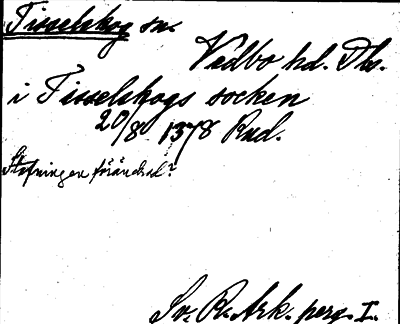 Tisselskog sn.
Vedbo hd. Dls.
i Tisselskogs socken
20/8 1378 Rud.
Stafningen förändrad?
Sv. R. Ark. perg. I.